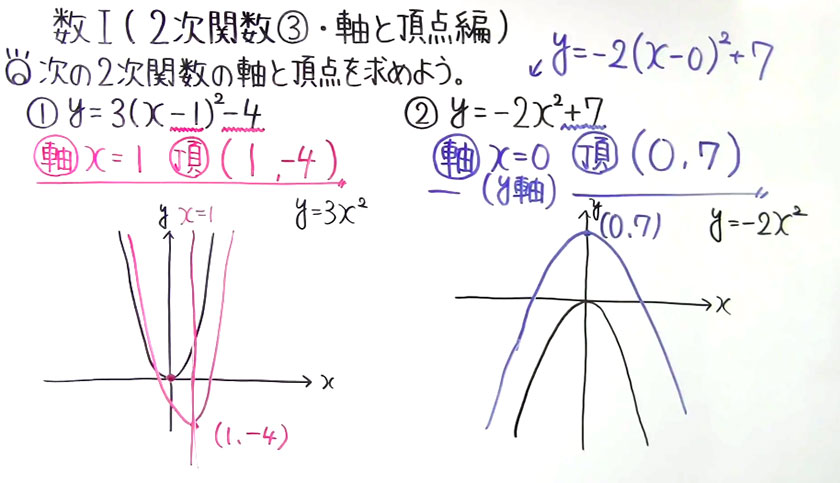 数I(2次関数③・軸と頂点編)
次の2次関数の軸と頂点を求めよう。
↙ y=-2(x-0)²+7
① y=3(x-1)²-4
軸 x=1 頂 (1,-4)
y x=1 y=3x²
x
(1,-4)
② y=-2x²+7
軸 x=0 頂 (0,7)
(y軸)
y (0,7) y=-2x²
x